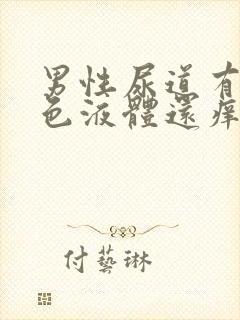 男性尿道有
色液體還癢
付藝琳